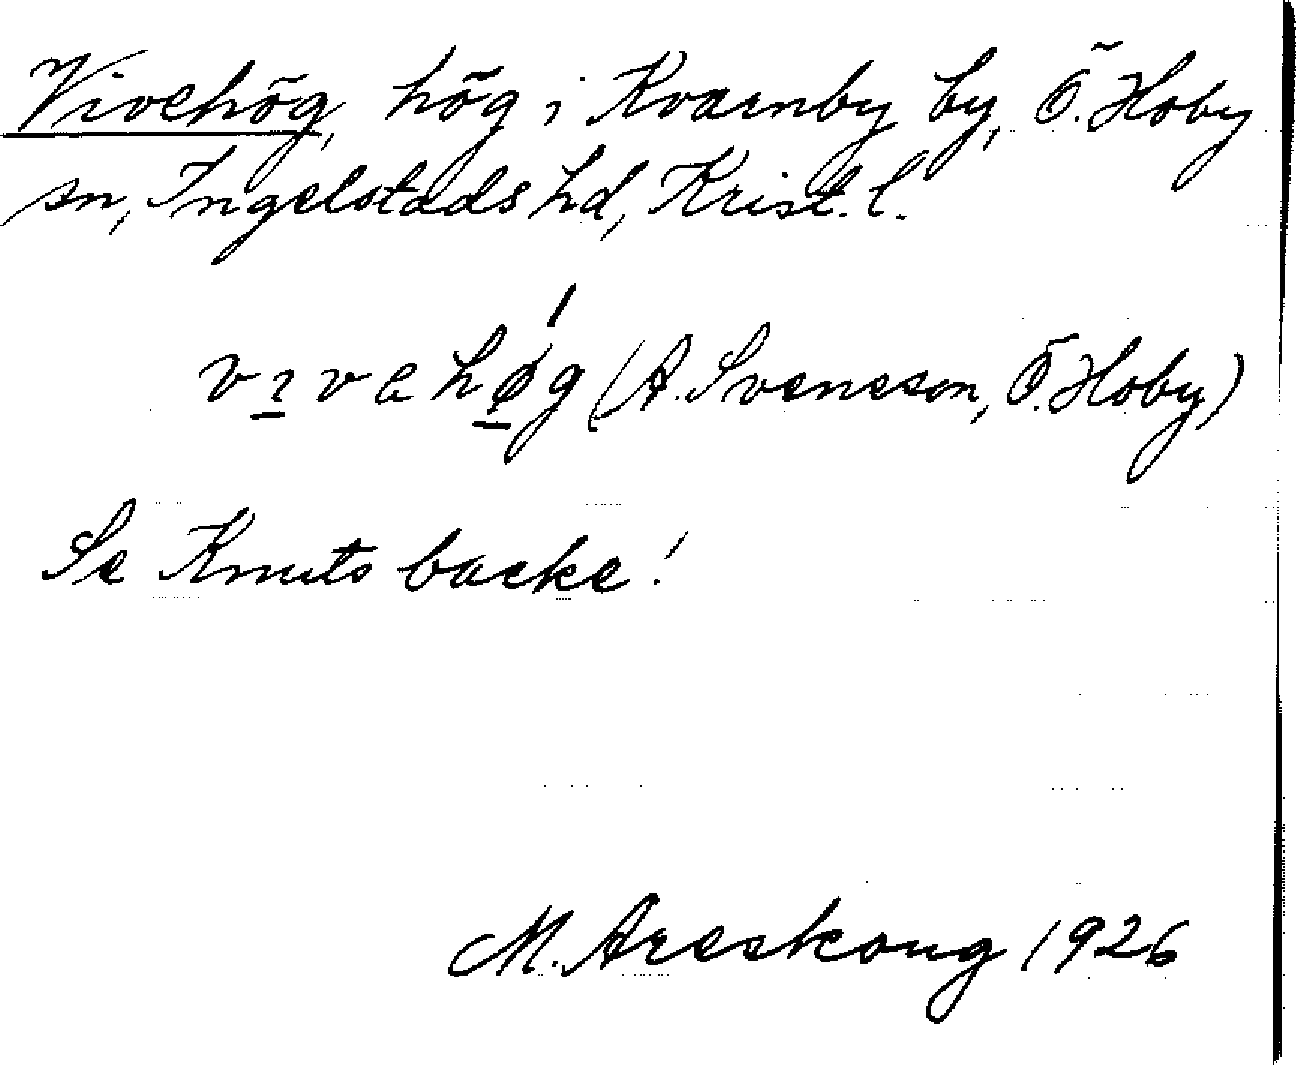 Vivehög, hög i Kvarnby by, Ö. Hoby
sn, Ingelstads hd, Krist. l.
vıvehø̀g (A. Svensson, Ö. Hoby)
Se Knuts backe!
M. Areskoug 1926